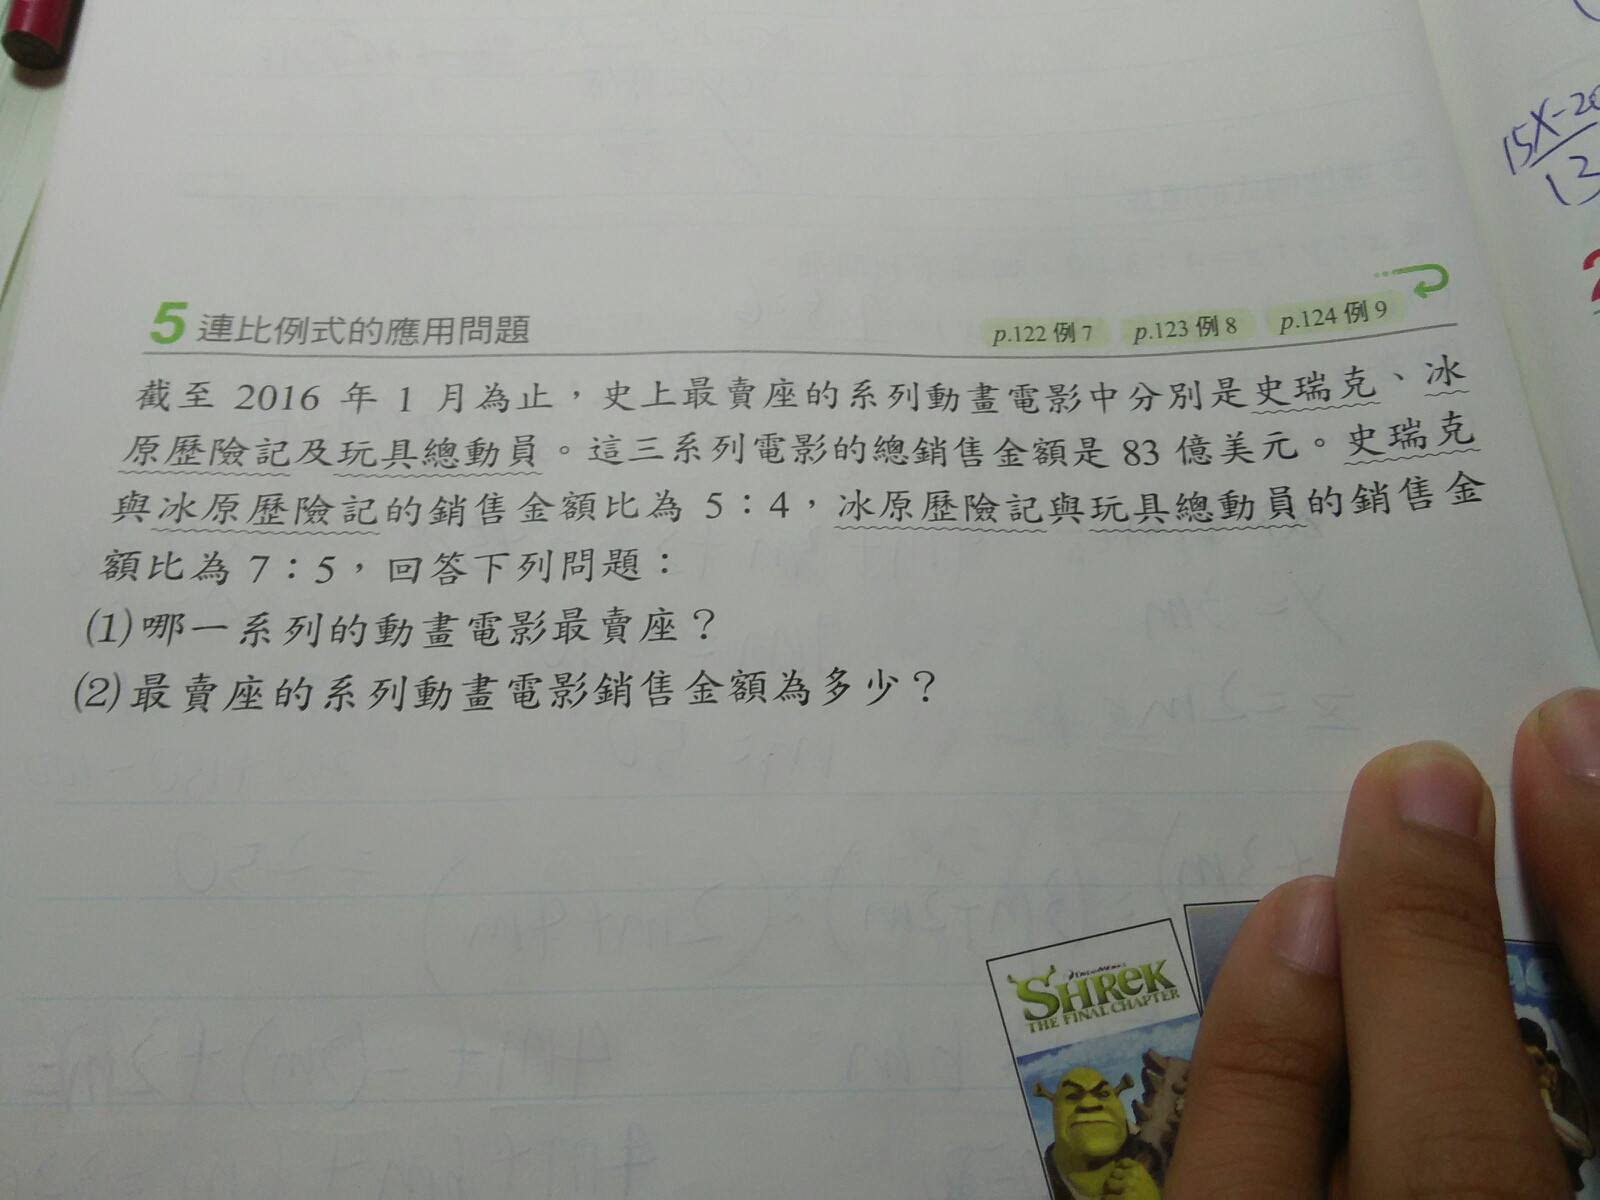 15X-20
13
5 連比例式的應用問題 p.122 例 7 p.123 例 8 p.124 例 9
截至 2016 年 1 月為止，史上最賣座的系列動畫電影中分別是史瑞克、冰
原歷險記及玩具總動員。這三系列電影的總銷售金額是 83 億美元。史瑞克
與冰原歷險記的銷售金額比為 5：4，冰原歷險記與玩具總動員的銷售金
額比為 7：5，回答下列問題：
(1)哪一系列的動畫電影最賣座？
(2)最賣座的系列動畫電影銷售金額為多少？
DREAMWORKS
SHREK
THE FINAL CHAPTER